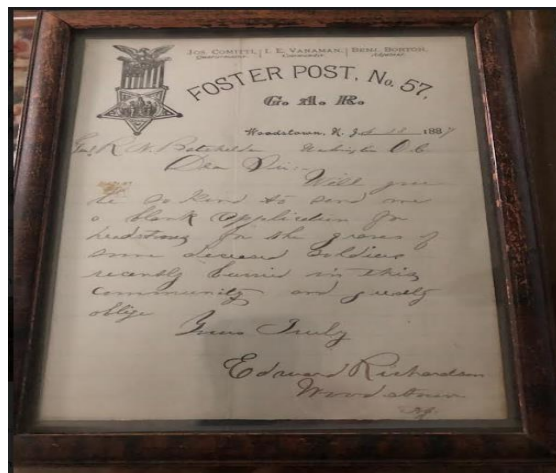 JOS. COMITTI, | I. E. VANAMAN, | BENJ. BORTON,
FOSTER POST, No. 57,
G. A. R.
Woodstown, N. J. 188
Genl R. N. Batchelder Washington D.C.
Dear Sir:
Will you
be so kind to send me
a blank application for
headstones for the graves of
some deceased soldiers
recently buried in this
community and greatly
oblige
Yours Truly
Edward Richardson
Woodstown
NJ